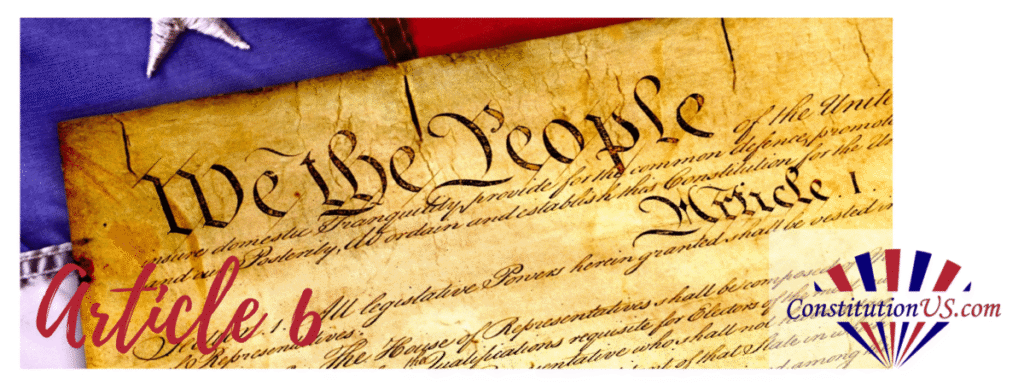 We the People
of the Unite
insure domestic Tranquility, provide for the common defence, promote
and our Posterity, do ordain and establish this Constitution for the Un
Article. I.
1. All legislative Powers herein granted shall be vested in
Representatives.
The House of Representatives shall be composed of
Qualifications requisite for Electors of the
who shall not
of that State in
Article 6
ConstitutionUS.com